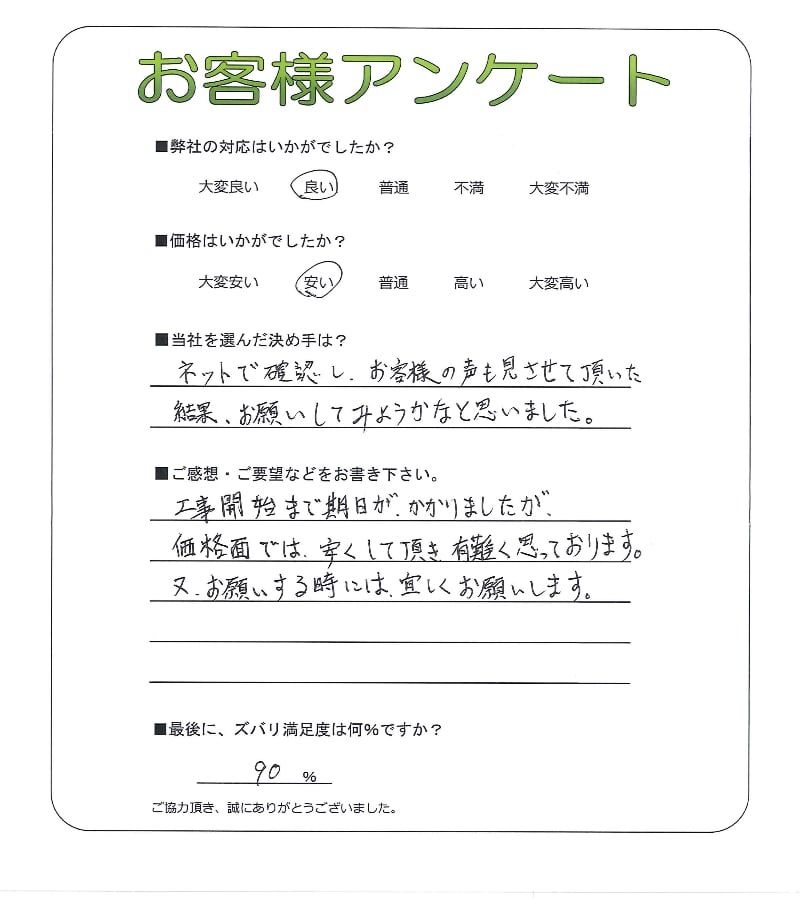 お客様アンケート
■弊社の対応はいかがでしたか？
大変良い 良い 普通 不満 大変不満
■価格はいかがでしたか？
大変安い 安い 普通 高い 大変高い
■当社を選んだ決め手は？
ネットで確認し、お客様の声も見させて頂いた
結果、お願いしてみようかなと思いました。
■ご感想・ご要望などをお書き下さい。
工事開始まで期日が、かかりましたが、
価格面では、安くして頂き有難く思っております。
又、お願いする時には、宜しくお願いします。
■最後に、ズバリ満足度は何％ですか？
90 ％
ご協力頂き、誠にありがとうございました。